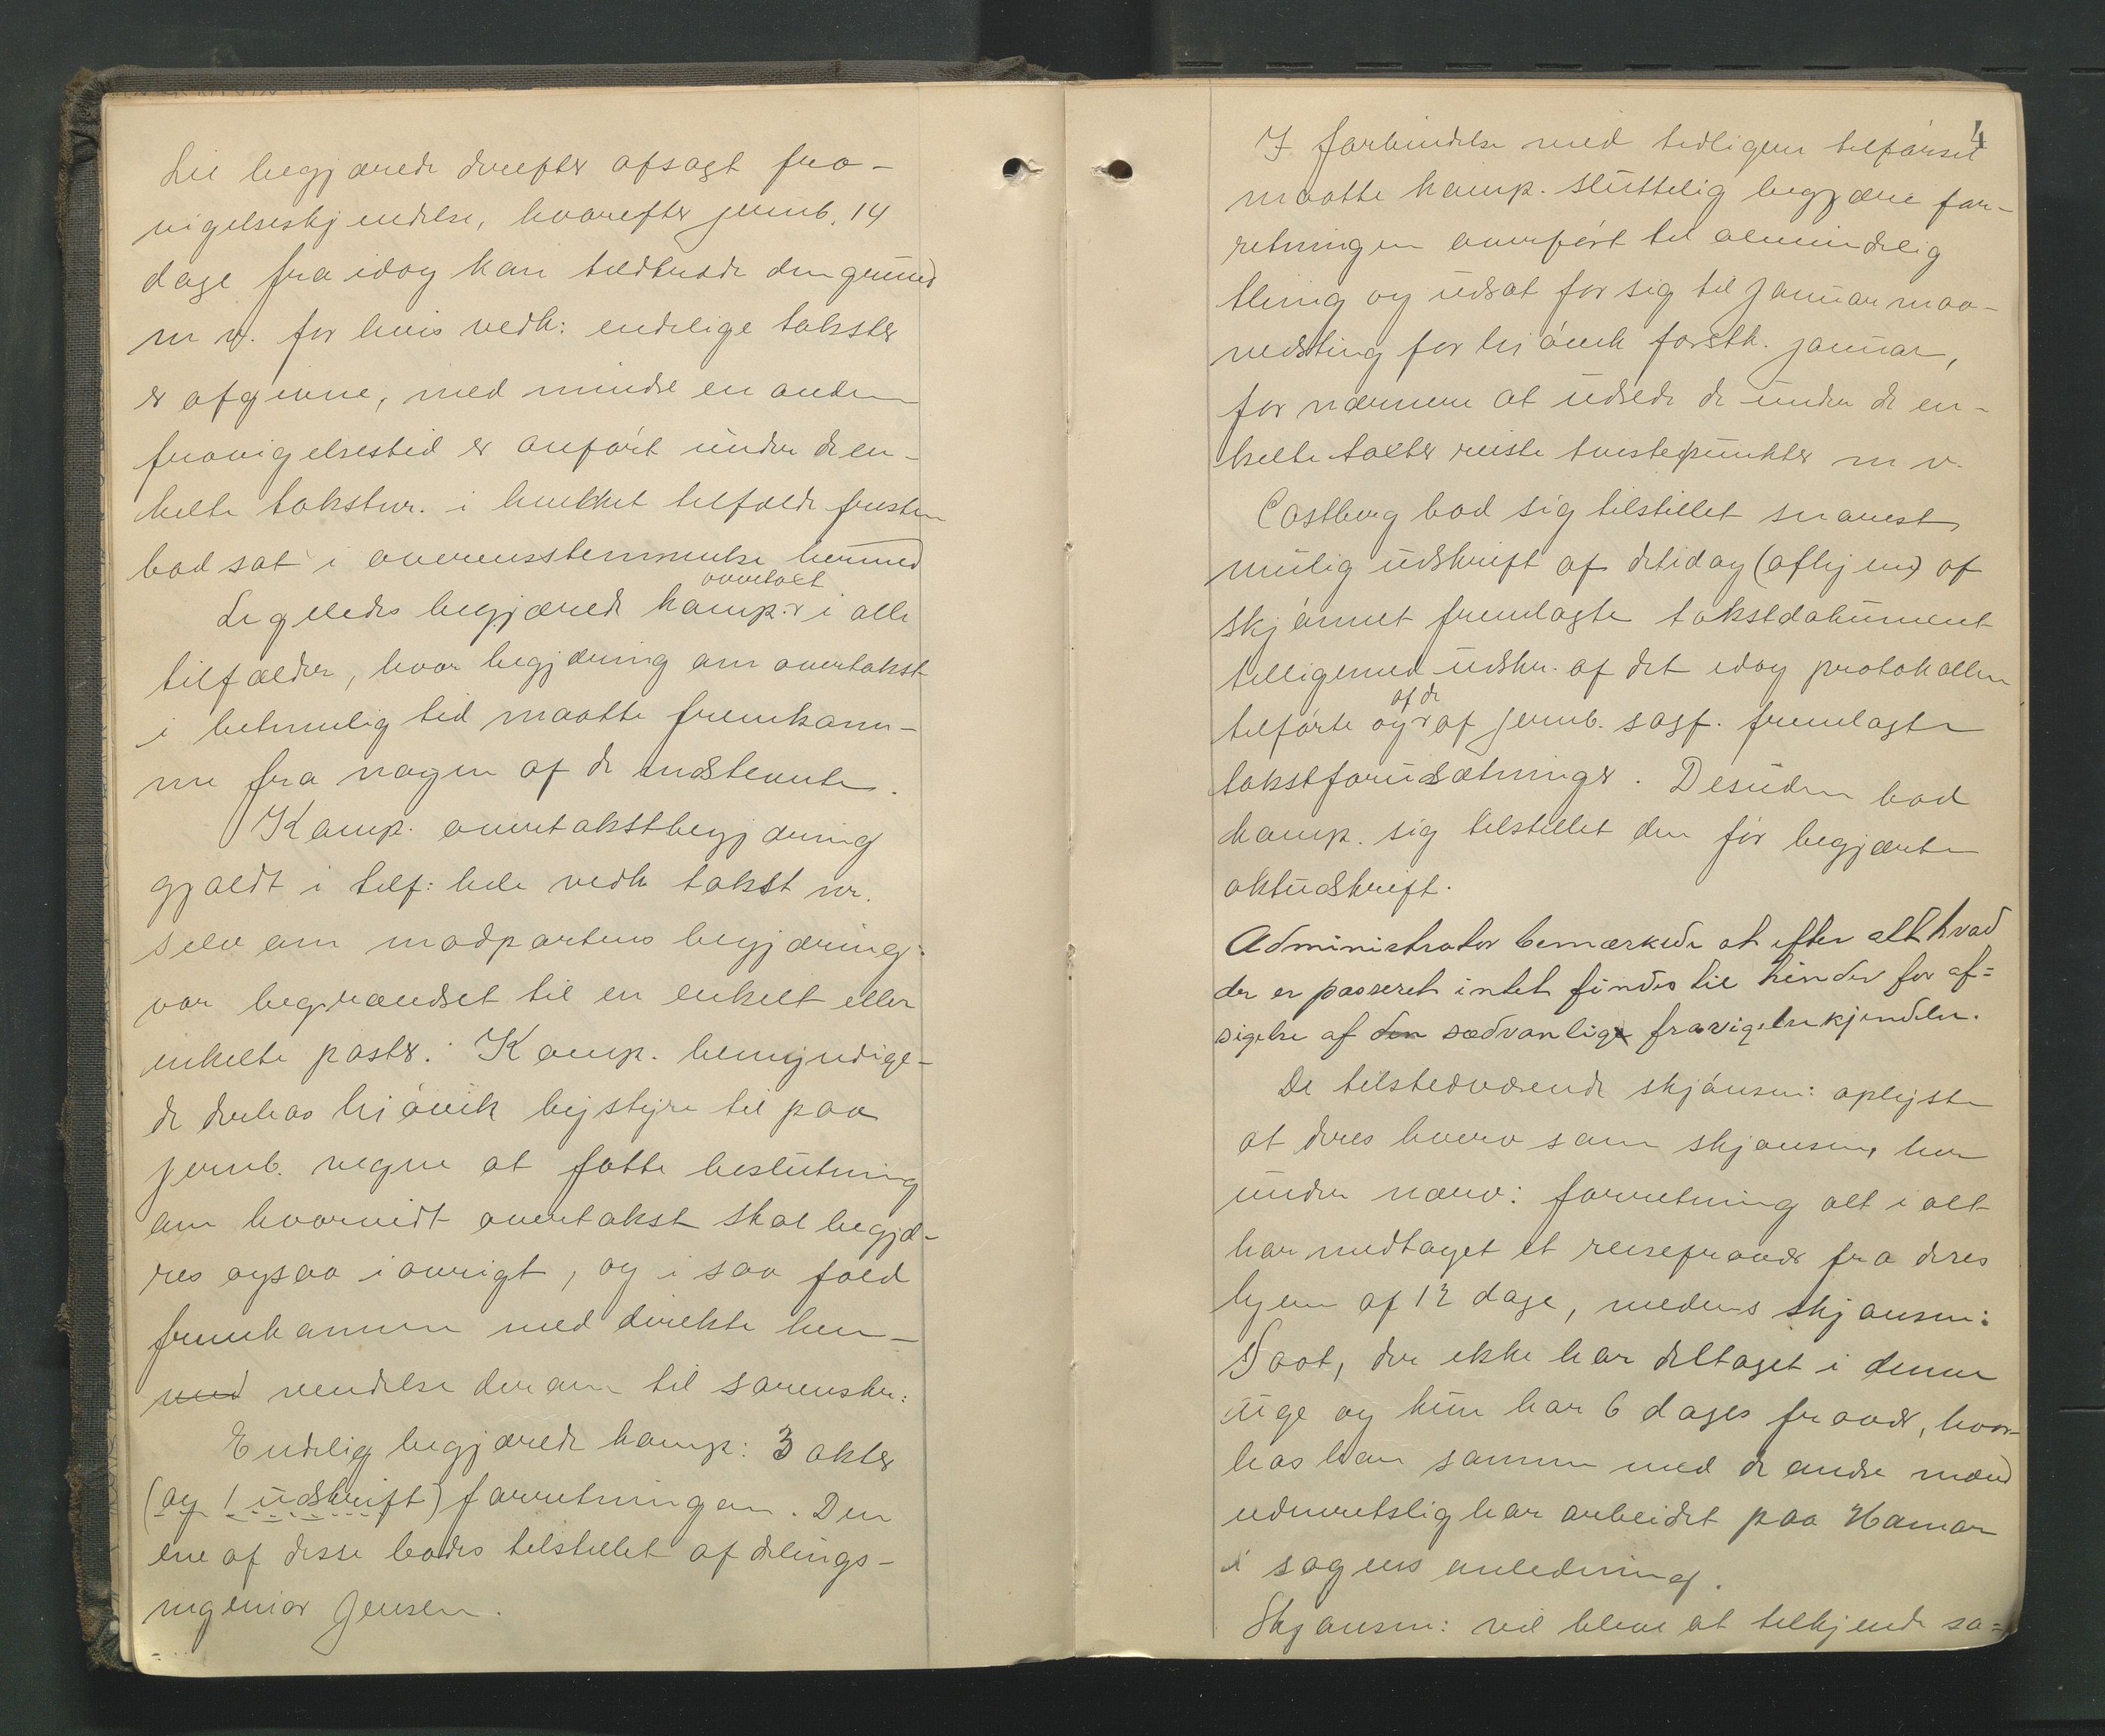 Lie begjærede derefter afsagt fra-
vigelseskjendelse, hvorefter jernb. 14
dage fra idag kan tiltræde den grund
m v. for hvis vedk: endelige takster
er afgivne, med mindre en anden
fravigelsestid er anført under den en-
kelte takstnr. i hvilket tilfælde fristen
bad sat i overensstemmelse hermed
overtaxt
Ligeledes begjærede komp. i alle
tilfælder, hvor begjæring om overtakst
i betimelig tid maatte fremkom-
me fra nogen af de indstevnte.
Komp. overtakstbegjæring
gjaldt i tilf: hele vedk takst nr.
selv om modpartens begjæring
var begrændset til en enkelt eller
enkelte poster. Komp. bemyndige-
de derhos Gjøvik bestyre til paa
jernb. vegne at fatte beslutning
om hvorvidt overtakst skal begjæ-
res ogsaa iøvrigt, og i saa fald
fremkomme med direkte hen-
med vendelse derom til sorenskr:
Endelig begjærede komp: 3 akter
(og 1 udskrift) forretningen. Den
ene af disse bades tilstillet afdelings-
ingeniør Jensen.
4
I forbindelse med tidligere tilførsel
maatte komp. sluttelig begjære for-
retningen overført til almindelig
thing og udsat for sig til januar maa-
nedsting for Gjøvik forstk. januar,
for nærmere at udrede de under de en-
kelte takster reiste tvistepunkter m v.
Castberg bad sig tilstillet snarest
mulig udskrift af det idag (afhjem) af
skjønnet fremlagte takstdokument
tilligemed udskr. af det idag protokollen
af de
tilførte og af jernb. sagf. fremlagte
takstforudsætninger. Desuden bad
komp. sig tilstillet den før begjærte
aktudskrift.
Administrator bemærkede at efter alt hvad
der er passeret intet findes til hinder for af=
sigelse af den sædvanlige fravigelseskjendelse.
De tilstedværende skjønsm: oplyste
at deres hverv som skjønsm, her
under nærv: forretning alt i alt
har medtaget et reisefravær fra deres
hjem af 12 dage, medens skjønsm:
Foot, der ikke har deltaget i denne
uge og kun har 6 dages fravær, hvor-
hos han sammen med de andre mænd
udenretslig har arbeidet paa Hamar
i sagens anledning.
Skjønsm: vil blive at tilkjende sa=